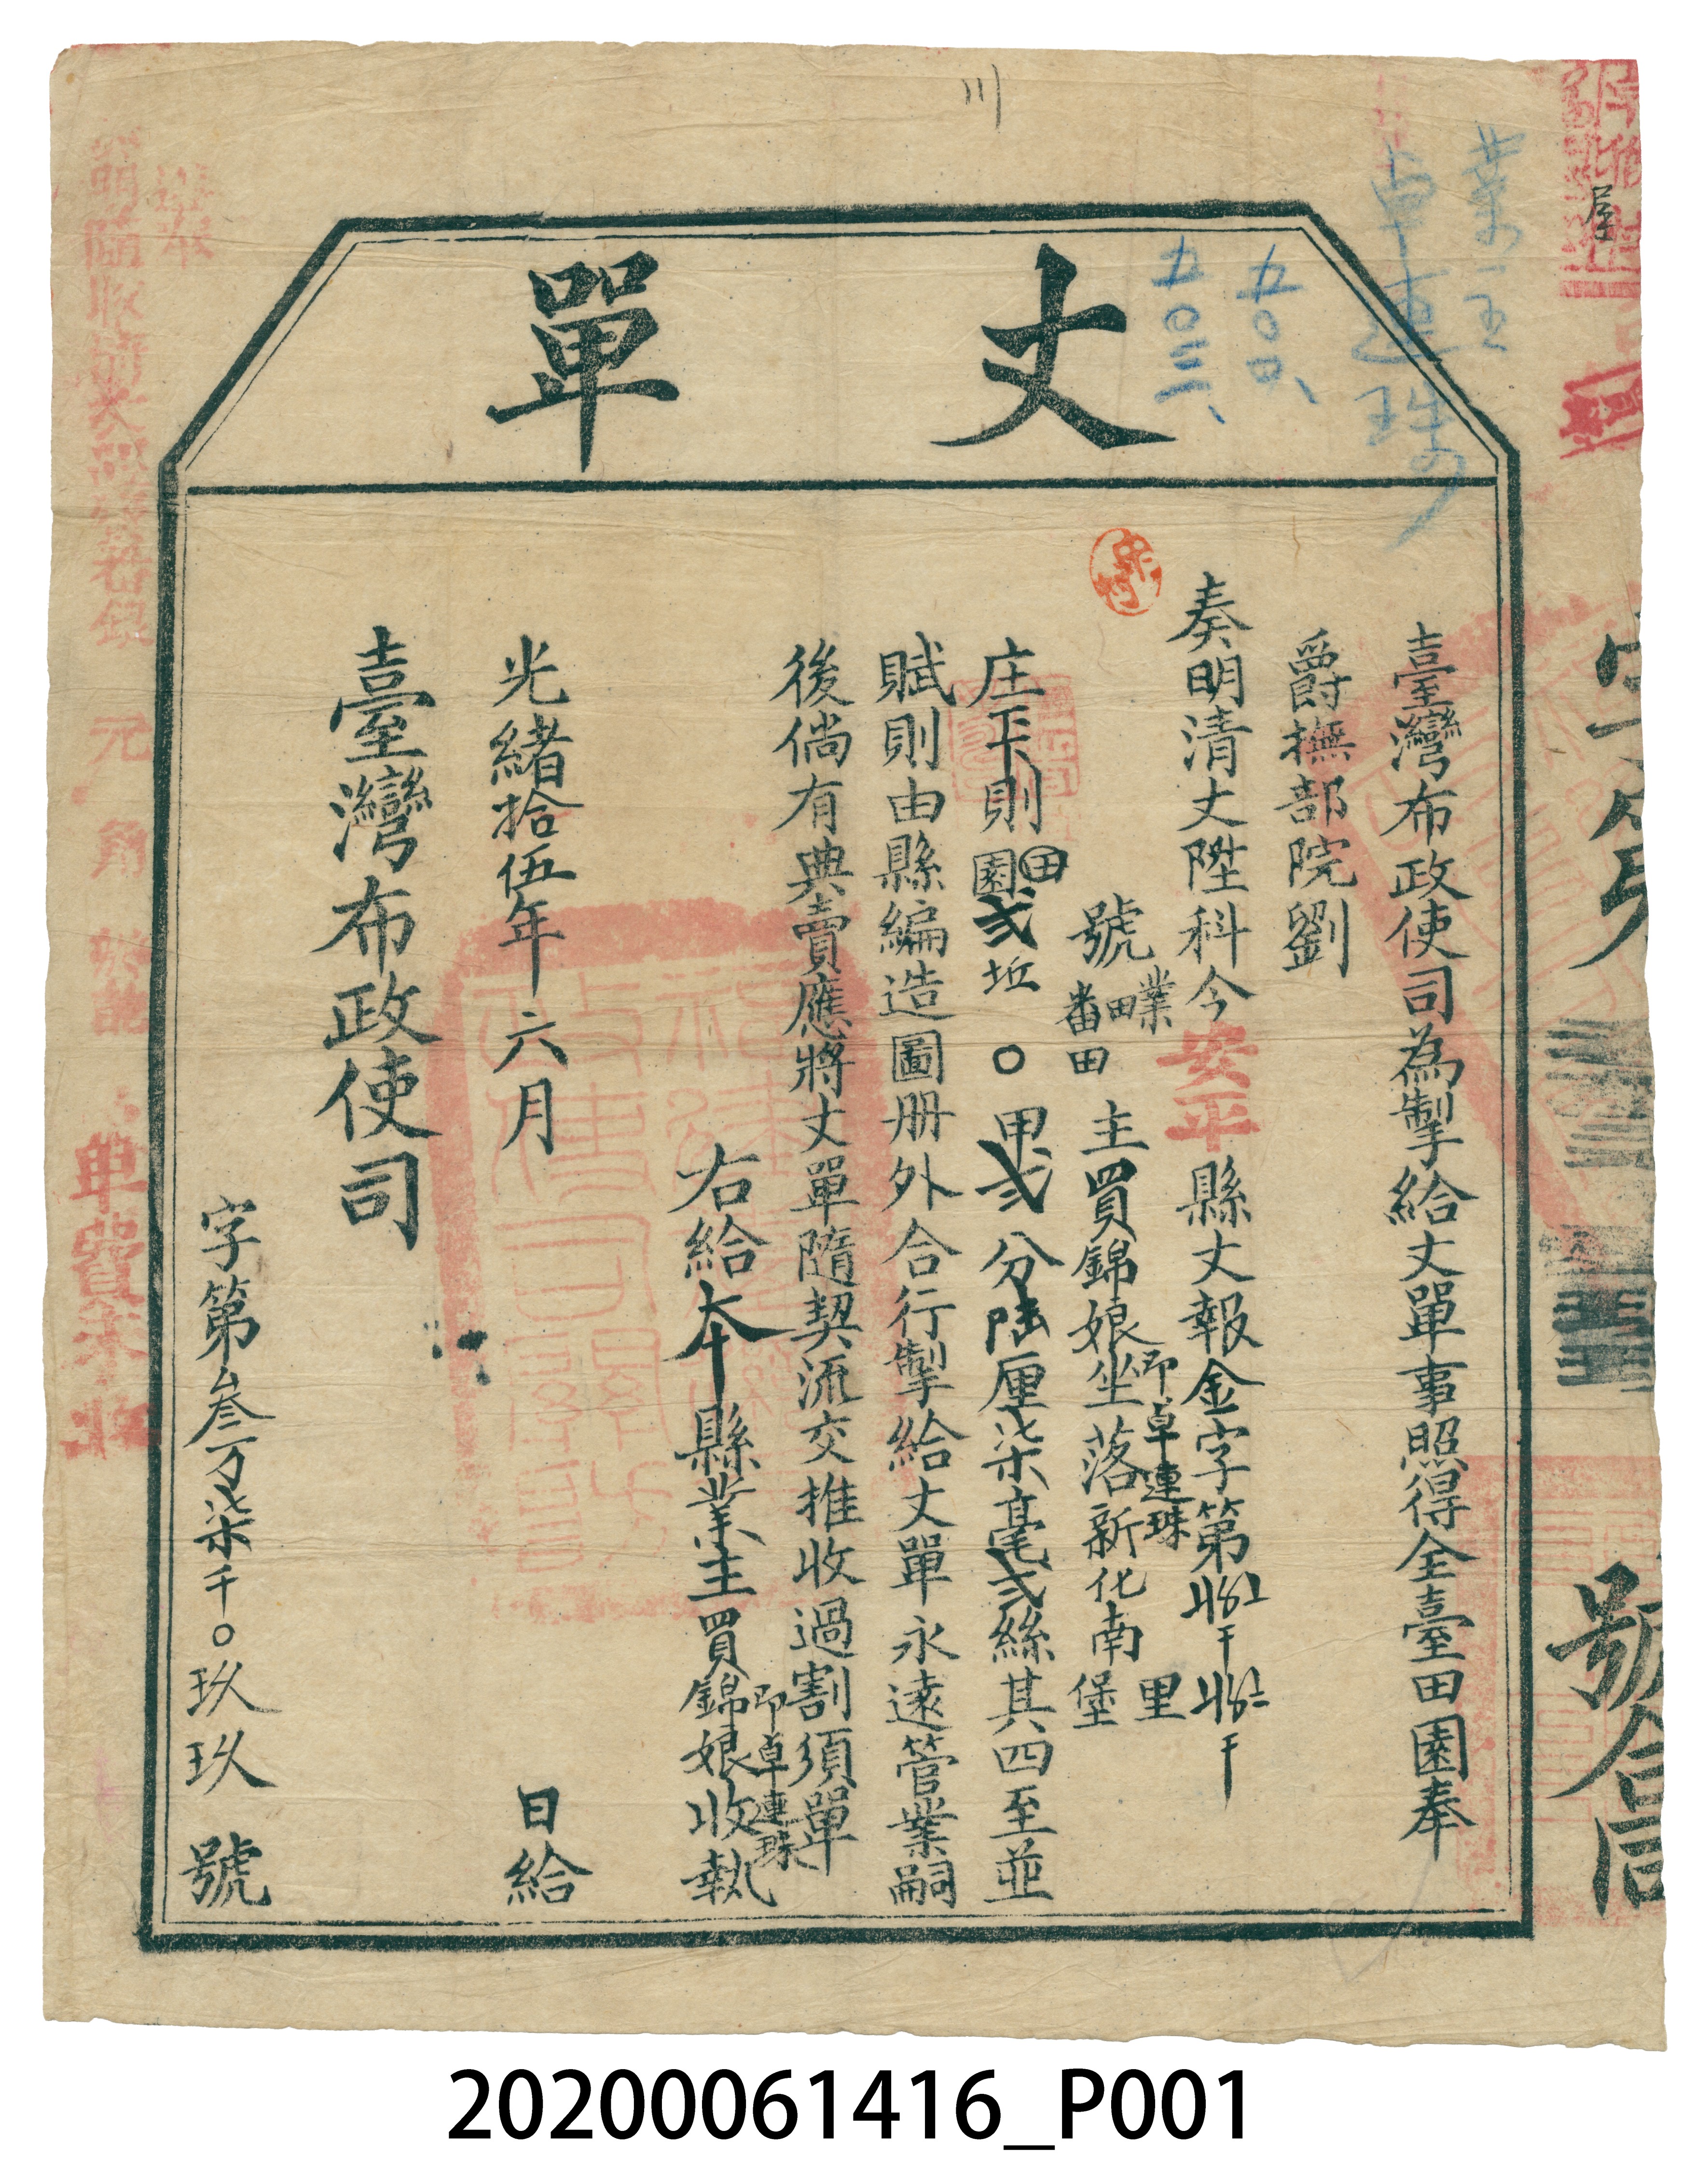 丈單
臺灣布政使司為掣給丈單事照得全臺田園奉
爵撫部院劉
奏明清丈陞科今安平縣丈報金字第
號業田番田主買錦娘坐落新化南里堡
即卓連珠
庄下則田園弍坵〇甲弍分陸厘柒毫弍絲其四至並
賦則由縣編造圖册外合行掣給丈單永遠管業嗣
後倘有典賣應將丈單隨契流交推收過割須單
右給本縣業主買錦娘收執
即卓連珠
光緒拾伍年六月日給
臺灣布政使司
字第叁万柒千〇玖玖號
業主
卓連珠
五〇四、
五〇三、
號合同
單費未收
20200061416_P001